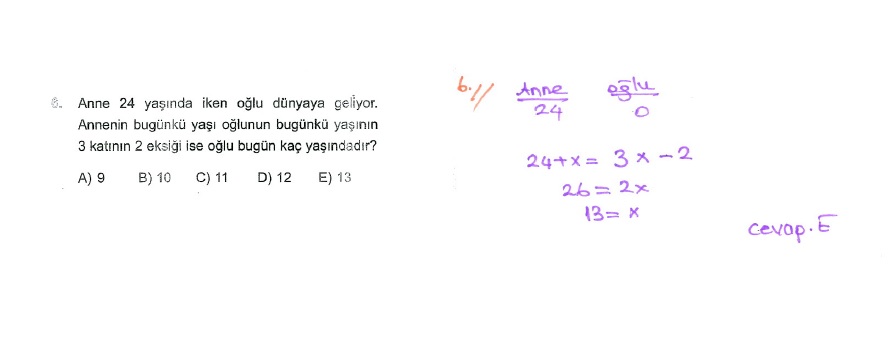 6. Anne 24 yaşında iken oğlu dünyaya geliyor.
Annenin bugünkü yaşı oğlunun bugünkü yaşının
3 katının 2 eksiği ise oğlu bugün kaç yaşındadır?
A) 9 B) 10 C) 11 D) 12 E) 13
6.//
Anne oğlu
24 0
24+x = 3x-2
26 = 2x
13 = x
cevap.E